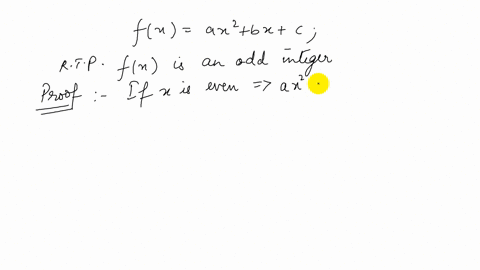 f(x) = ax²+bx+c ;
R.T.P. f(x) is an odd integer
Proof :- If x is even => ax²